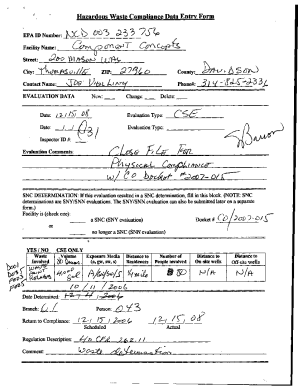 Hazardous Waste Compliance Data Entry Form
EPA ID Number: NCD 003 233 756
Facility Name: Component Concepts
Street: 200 Mason Way
City: Thomasville ZIP: 27960 County: Davidson
Contact Name: Joe Phone#: 314-825-2331
EVALUATION DATA New: Change: Delete:
Date: 12, 15, 08 Evaluation Type: CSE
Date: Evaluation Type:
Inspector ID #: 031
Evaluation Comments: Close File For
Physical Compliance
w/ CO Docket # 2007-015
SNC DETERMINATION: If this evaluation resulted in a SNC determination, fill in this block. (NOTE: SNC
determinations are SNY/SNN evaluations. The SNY/SNN evaluation can also be submitted later on a separate
form.)
Facility is (check one):
a SNC (SNY evaluation) Docket # CO/2007-015
or
no longer a SNC (SNN evaluation)
YES / NO CSE ONLY
Waste Involved Volume Exposure Media Distance to Residences Number of People involved Distance to On-site wells Distance to Off-site wells
D001
N/A N/A
10/11/2006
Date Determined: 12-4-2006
Branch: Person: 043
Return to Compliance: 12, 15, 2006 12, 15, 08
Scheduled Actual
Regulation Description: 40 CFR 262.11
Comment: Waste Determination